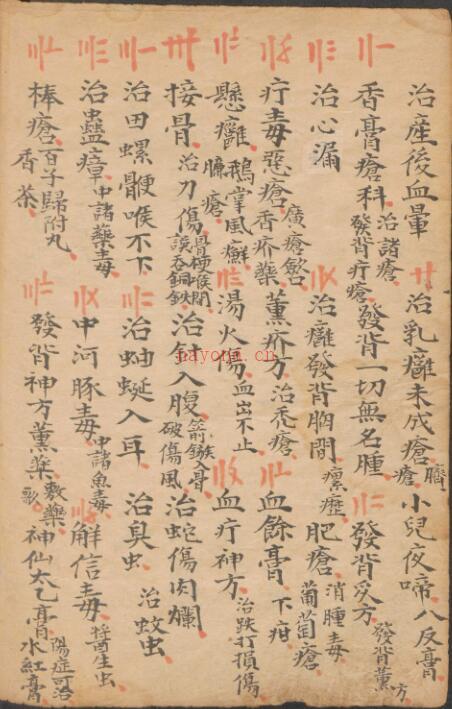 治產後血暈 卄 治乳癰未成瘡 臍瘡 小兒夜啼 八反膏
〢一 香膏瘡科 治諸瘡 發背疔瘡 發背一切無名腫 〢二 發背灸方 發背薰方
〢三 治心漏 〢〤 治癰發背胸間 瘰癧 肥瘡 消腫毒 葡萄瘡
〢〥 疔毒惡瘡 廣瘡 香疥藥 薰疥方 治禿瘡 〢〦 血餘膏 下疳
懸癰 臁瘡 鵝掌風癬 湯火傷 血出不止 血疔神方 治跌打損傷
卅 接骨 治刀傷 骨硬喉閉 誤吞銅鉄 治針入腹 箭鏃入骨 破傷風 治蛇傷肉爛
〣一 治田螺骾喉不下 〣二 治蚰蜒入耳 治臭虫 治蚊虫
〣三 治蠱瘴 中諸藥毒 〣〤 中河豚毒 中諸魚毒 解信毒 醬生虫
〣〦 棒瘡 百子歸附丸 香茶 發背神方薰藥 敷藥 歌 神仙太乙膏 陽症可治 水紅膏
nayona.cn